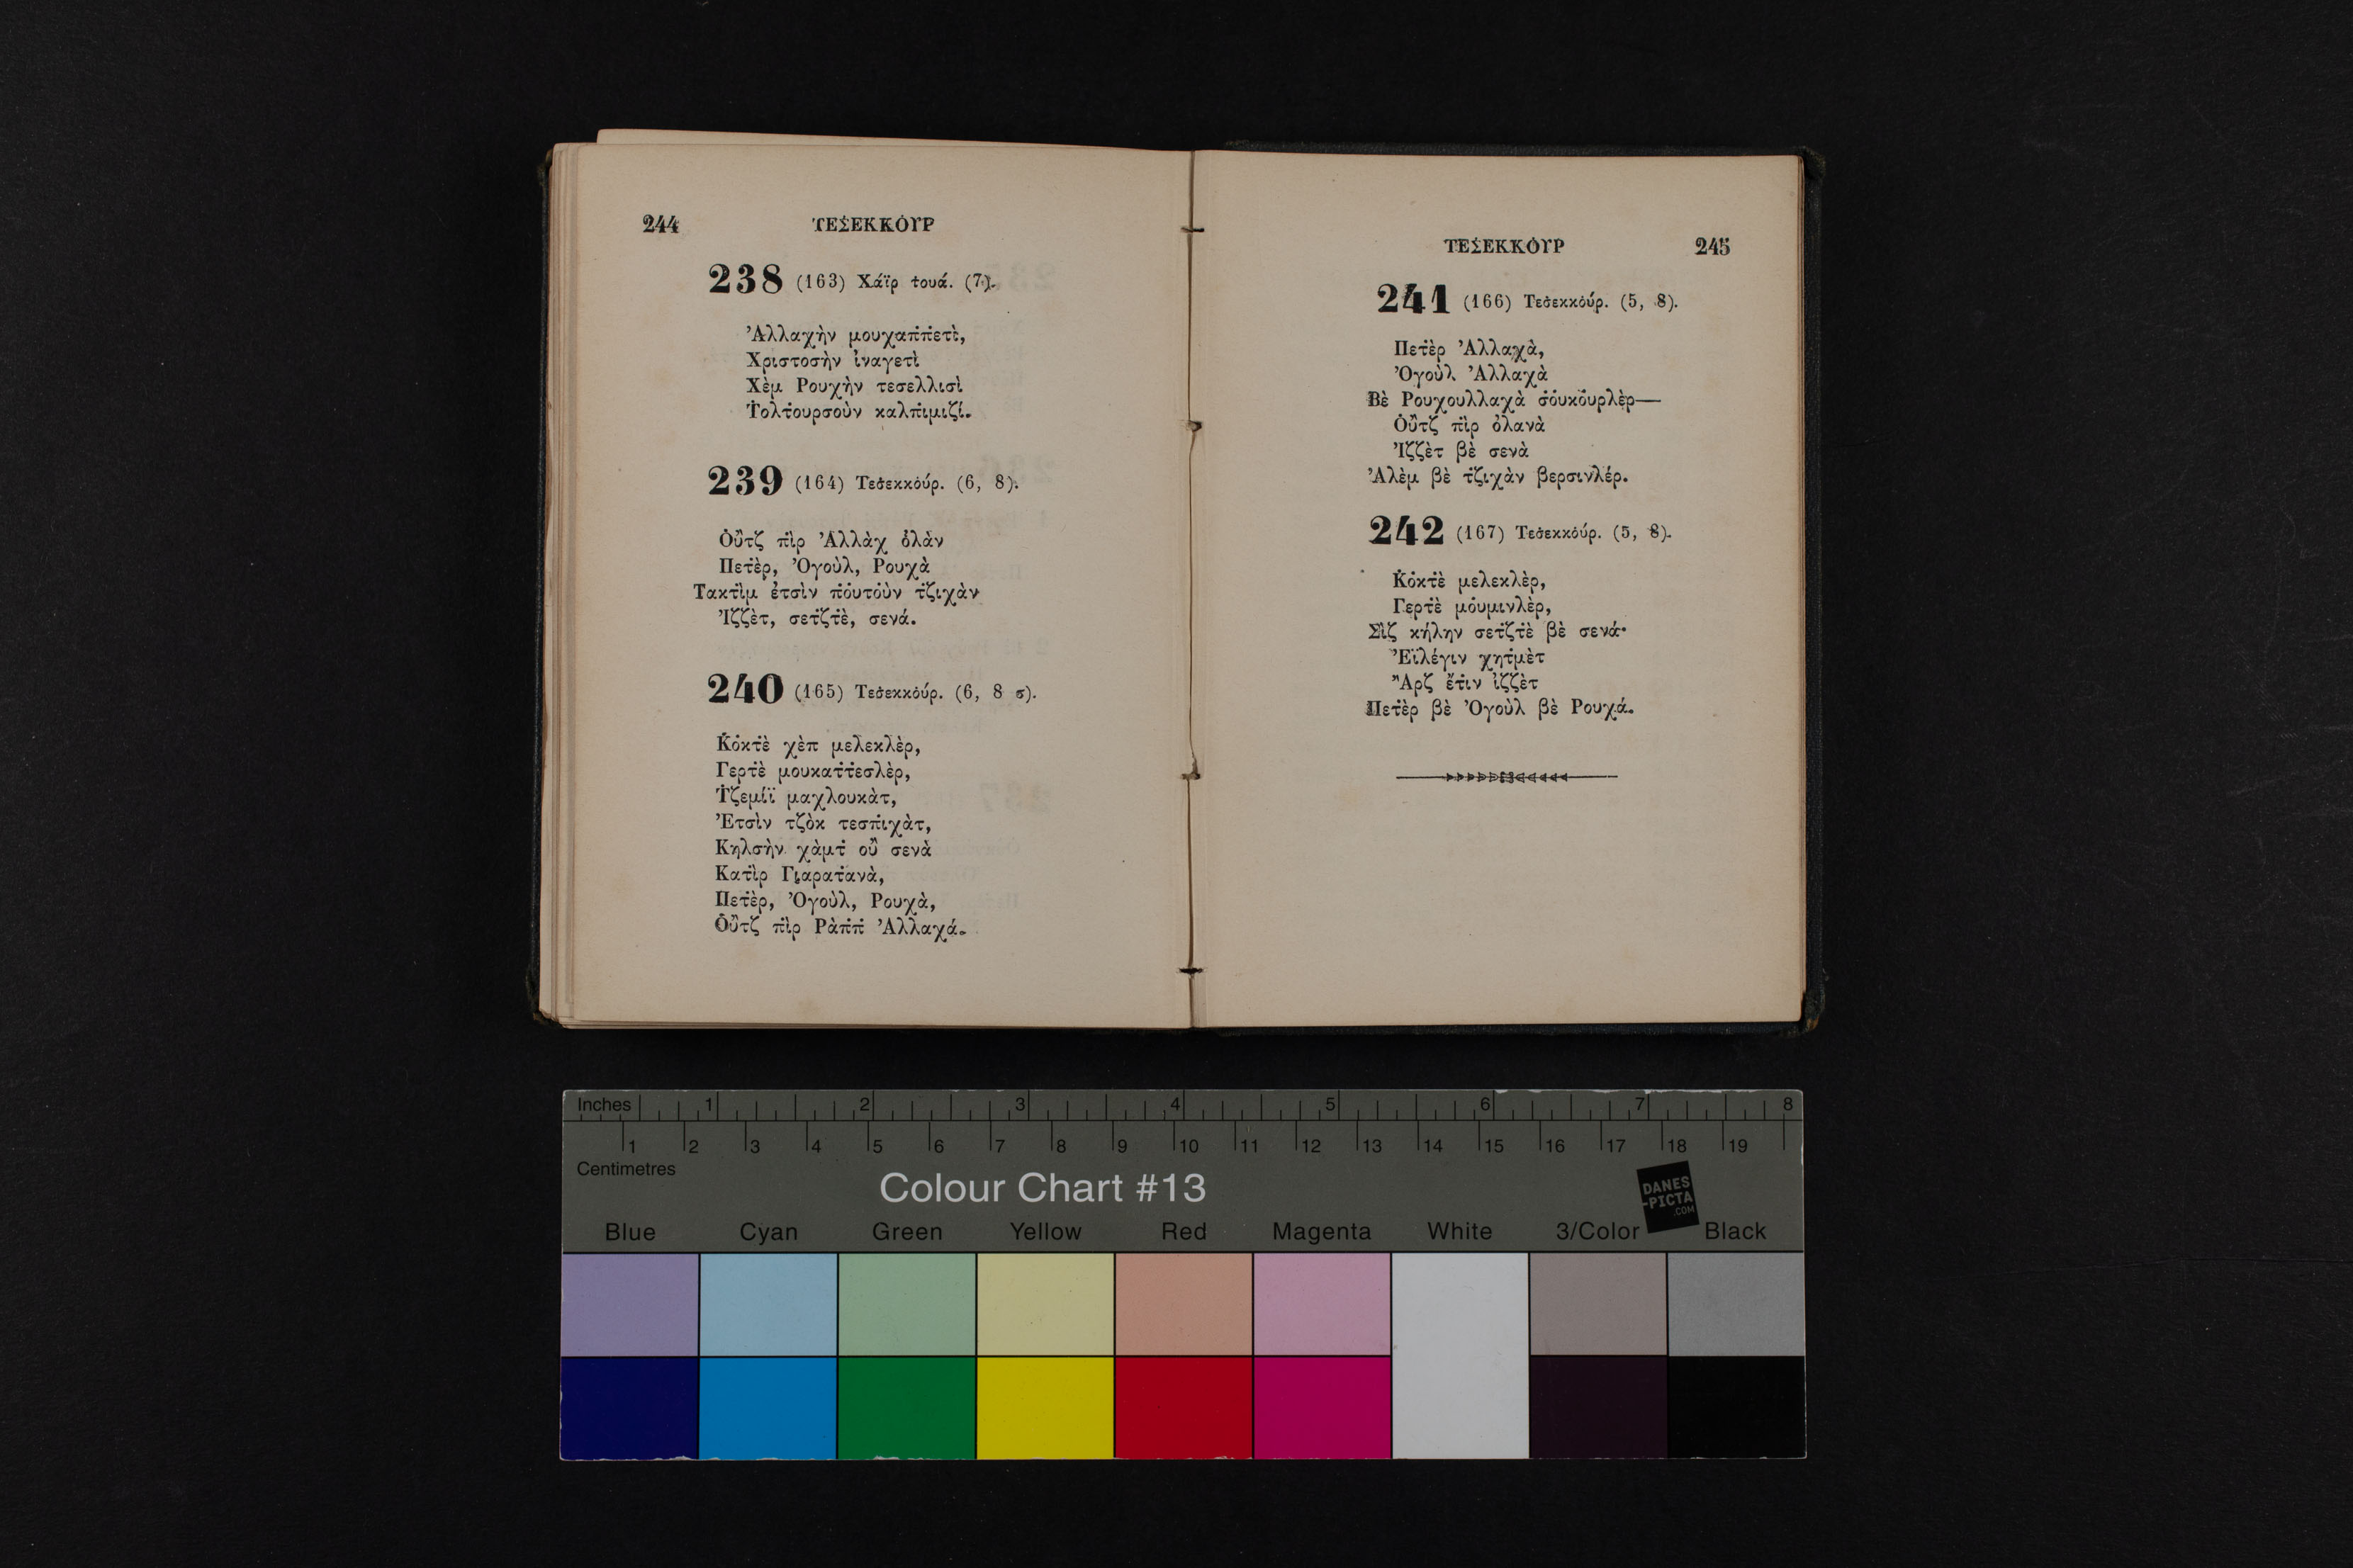 244 ΤΕΣ̇ΕΚΚΟ̇ΥΡ
238 (163) Χάϊρ τ̇ουά. (7).
Ἀλλαχὴν μουχαπ̇π̇ετὶ,
Χριστοσὴν ἰναγετὶ
Χὲμ Ρουχὴν τεσελλισὶ
Τ̇ολτ̇ουρσοὺν καλπ̇ιμιζί.
239 (164) Τεσ̇εκκο̇ύρ. (6, 8).
Ὀ̇ῢτζ π̇ὶρ Ἀλλὰχ ὀλὰν
Πετ̇ὲρ, Ὀγοὺλ, Ρουχὰ
Τακτ̇ὶμ ἐτσὶν π̇ο̇υτο̇ὺν τ̇ζιχὰν
Ἰζζὲτ, σετ̇ζτ̇ὲ, σενά.
240 (165) Τεσ̇εκκο̇ύρ. (6, 8 σ).
Κ̇ο̇κτ̇ὲ χὲπ μελεκλὲρ,
Γερτ̇ὲ μουκατ̇τ̇εσλὲρ,
Τ̇ζεμίϊ μαχλουκὰτ,
Ἐτσὶν τζὸκ τεσπ̇ιχὰτ,
Κηλσὴν χὰμτ̇ οὒ σενὰ
Κατ̇ὶρ Γιαρατ̇ανὰ,
Πετ̇ὲρ, Ὀγοὺλ, Ρουχὰ,
Ὀ̇ῢτζ π̇ὶρ Ρὰπ̇π̇ Ἀλλαχά.
ΤΕΣ̇ΕΚΚΟ̇ΥΡ 245
241 (166) Τεσ̇εκκο̇ύρ. (5, 8).
Πετ̇ὲρ Ἀλλαχὰ,
Ὀγοὺλ Ἀλλαχὰ
Βὲ Ρουχουλλαχὰ σ̇ο̇υκο̇υρλὲρ—
Ὀ̇ῢτζ π̇ὶρ ὀλανὰ
Ἰζζὲτ βὲ σενὰ
Ἀλὲμ βὲ τ̇ζιχὰν βερσινλέρ.
242 (167) Τεσ̇εκκο̇ύρ. (5, 8).
Κ̇ο̇κτ̇ὲ μελεκλὲρ,
Γερτ̇ὲ μο̇υμινλὲρ,
Σὶζ κήλην σετ̇ζτ̇ὲ βὲ σενά·
Ἐϊλέγιν χητ̇μὲτ
Ἂρζ ἔτ̇ιν ἰζζὲτ
Πετ̇ὲρ βὲ Ὀγοὺλ βὲ Ρουχά.
Inches 1 2 3 4 5 6 7 8
1 2 3 4 5 6 7 8 9 10 11 12 13 14 15 16 17 18 19
Centimetres
Colour Chart #13
DANES
-PICTA
.COM
Blue Cyan Green Yellow Red Magenta White 3/Color Black